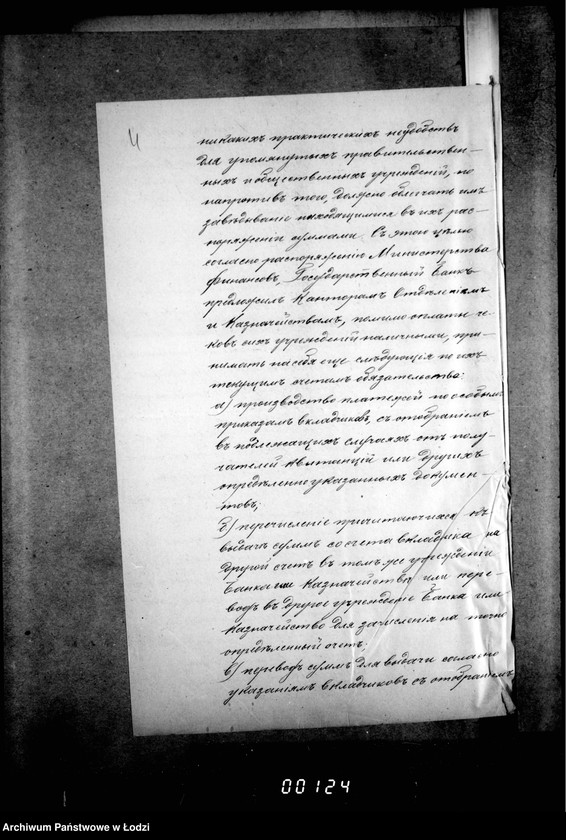 никакихъ практическихъ неудобствъ
для упомянутыхъ правительствен-
ныхъ и общественныхъ учрежденій, но
напротивъ того, должно облегчать имъ
завѣдываніе находящимися въ ихъ рас-
поряженіи суммами. Съ этою цѣлью
согласно распоряженію Министерства
Финансовъ, Государственный Банкъ
предложилъ Конторамъ Отдѣленіямъ
и Казначействамъ, помимо оплаты че-
ковъ сихъ учрежденій наличными, при-
нимать на себя еще слѣдующія по ихъ
текущимъ счетамъ обязательства:
а) производство платежей по особымъ
приказамъ вкладчиковъ, съ отобраніемъ
въ подлежащихъ случаяхъ отъ полу-
чателей квитанцій или другихъ
опредѣленно указанныхъ докумен-
товъ;
б) перечисленіе причитающихся къ
выдачѣ суммъ со счета вкладчика на
другой счетъ въ томъ же учрежденіи
Банка или Казначейства или пере-
водъ въ другое учрежденіе Банка или
Казначейство для зачисленія на точно
опредѣленный счетъ.
в) переводъ суммъ для выдачи согласно
указаніямъ вкладчиковъ съ отобраніемъ
00124
Archiwum Państwowe w Łodzi